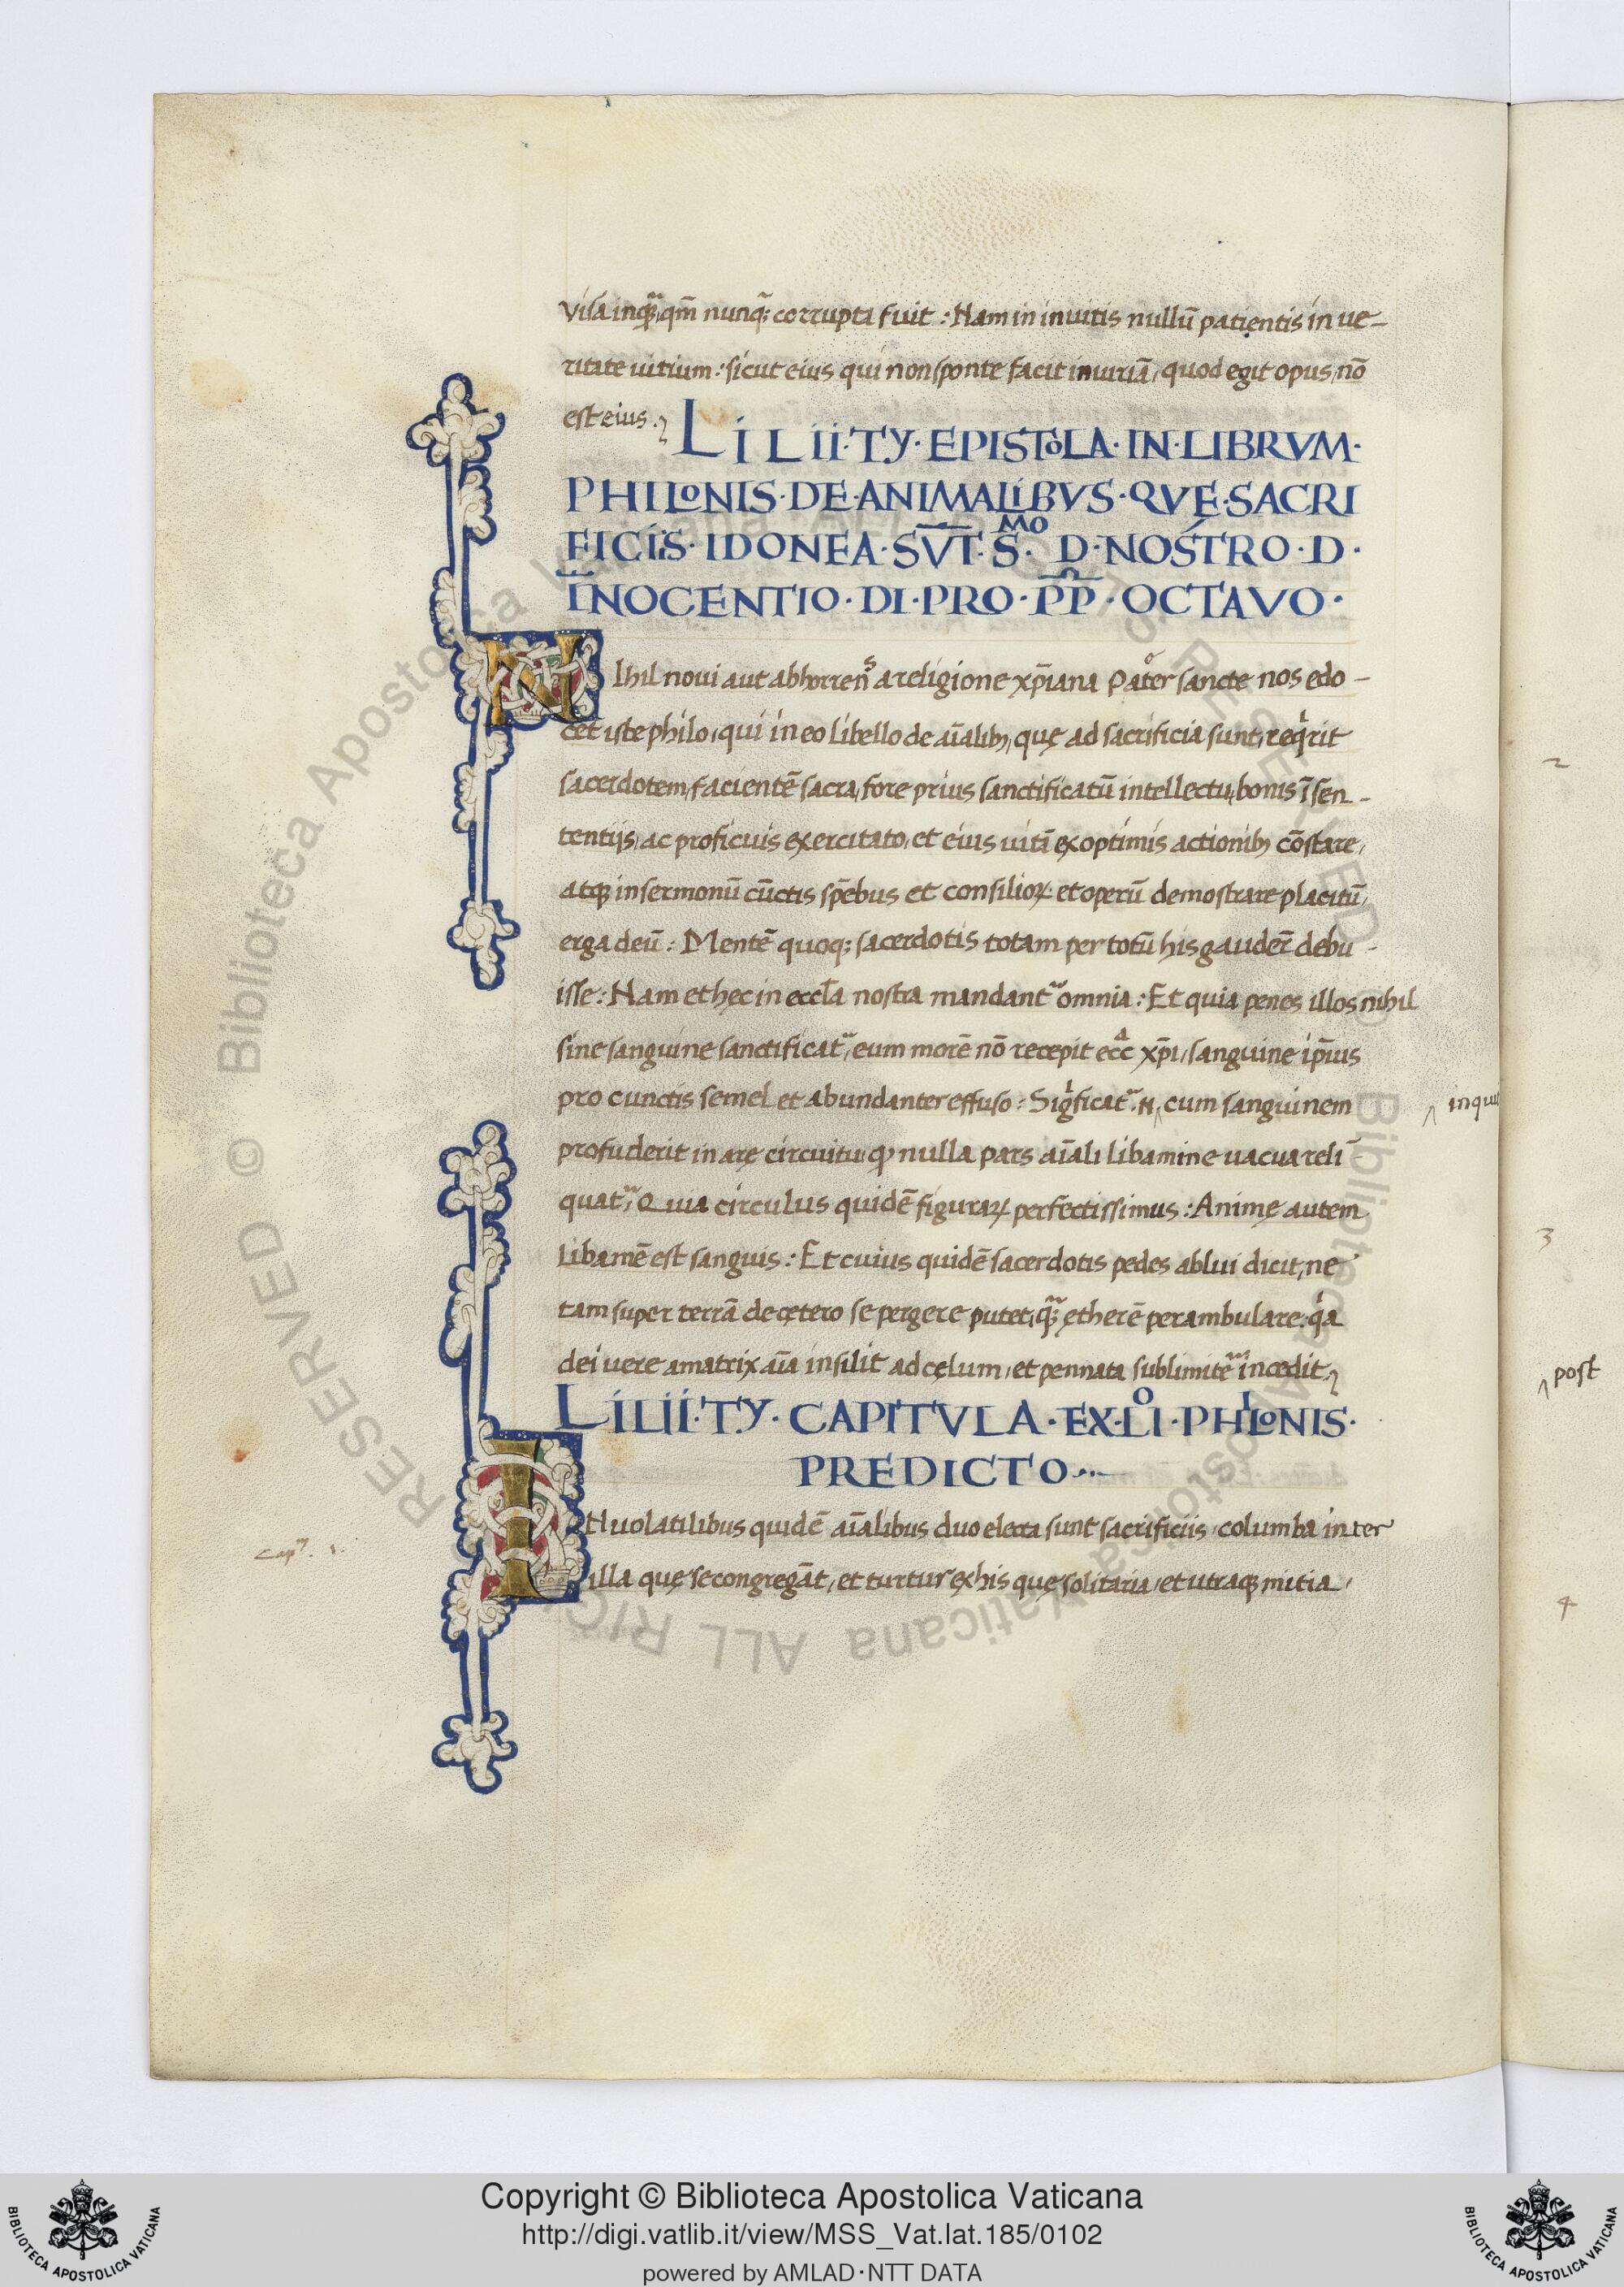 visa inqꝫ̃, qm̃ nunq̃ꝫ corrupta fuit : Nam in inuitis nullũ patientis in ue-
ritate uitium : sicut eius qui non sponte facit iniuriã, quod egit opus, nõ
est eius .
LILII · TY · EPISTOLA · IN · LIBRVM ·
PHILONIS · DE · ANIMALIBVS · QVE · SACRI
FICIIS · IDONEA · SV̅T · S̅ᴹᴼ · D · NOSTRO · D ·
I̅NOCENTIO · DI · PRO · P̅P̅ · OCTAVO ·
NIhil noui aut abhorrenˢ a religione xp̃iana Pater sancte nos edo-
cet iste philo, qui in eo libello de aĩalibꝫ, quę ad sacrificia sunt, reqͥrit
sacerdotem, facientẽ sacra, fore prius sanctificatũ intellectu, bonis ĩ sen-
tentijs, ac proficuis exercitato, et eius uitã ex optimis actionibꝫ cõstare,
atqꝫ in sermonũ cũctis sp̃ebus et consilioꝝ et operũ demostrare placitũ,
erga deũ : Mentẽ quoqꝫ sacerdotis totam per totũ his gauder̃ debu-
isse : Nam et hęc in eccl̃a nostra mandant᷑ omnia : Et quia penes illos nihil
sine sanguine sanctificat᷑, eum morẽ nõ recepit eccᵃ xp̃i, sanguine ip̃ius
pro cunctis semel et abundanter effuso : Sigͥficat᷑ .N. ‸ cum sanguinem
‸ inquit
profuderit in arę circuitu, ꝙ nulla pars aĩali libamine uacua reli-
quat᷑, Quia circulus quidẽ figuraꝝ perfectissimus : Animę autem
libamẽ est sanguis : Et cuius quidẽ sacerdotis pedes ablui dicit, ne
tam super terrã de cętero se pergere putet, qꝫ̃ ętherẽ perambulare : qͥa
dei uere amatrix aĩa insilit ad cęlum, et pennata sublimitẽ incedit,
LILII · TY · CAPITVLA · EX · LᴼI · PHILONIS ·
PREDICTO ...
IN uolatilibus quidẽ aĩalibus duo electa sunt sacrificiis, columba inter
illa quę se congregãt, et turtur ex his quę solitaria, et utraqꝫ mitia,
2
3
‸ post
4
Copyright © Biblioteca Apostolica Vaticana
http://digi.vatlib.it/view/MSS_Vat.lat.185/0102
powered by AMLAD·NTT DATA
BIBLIOTECA APOSTOLICA VATICANA
BIBLIOTECA APOSTOLICA VATICANA